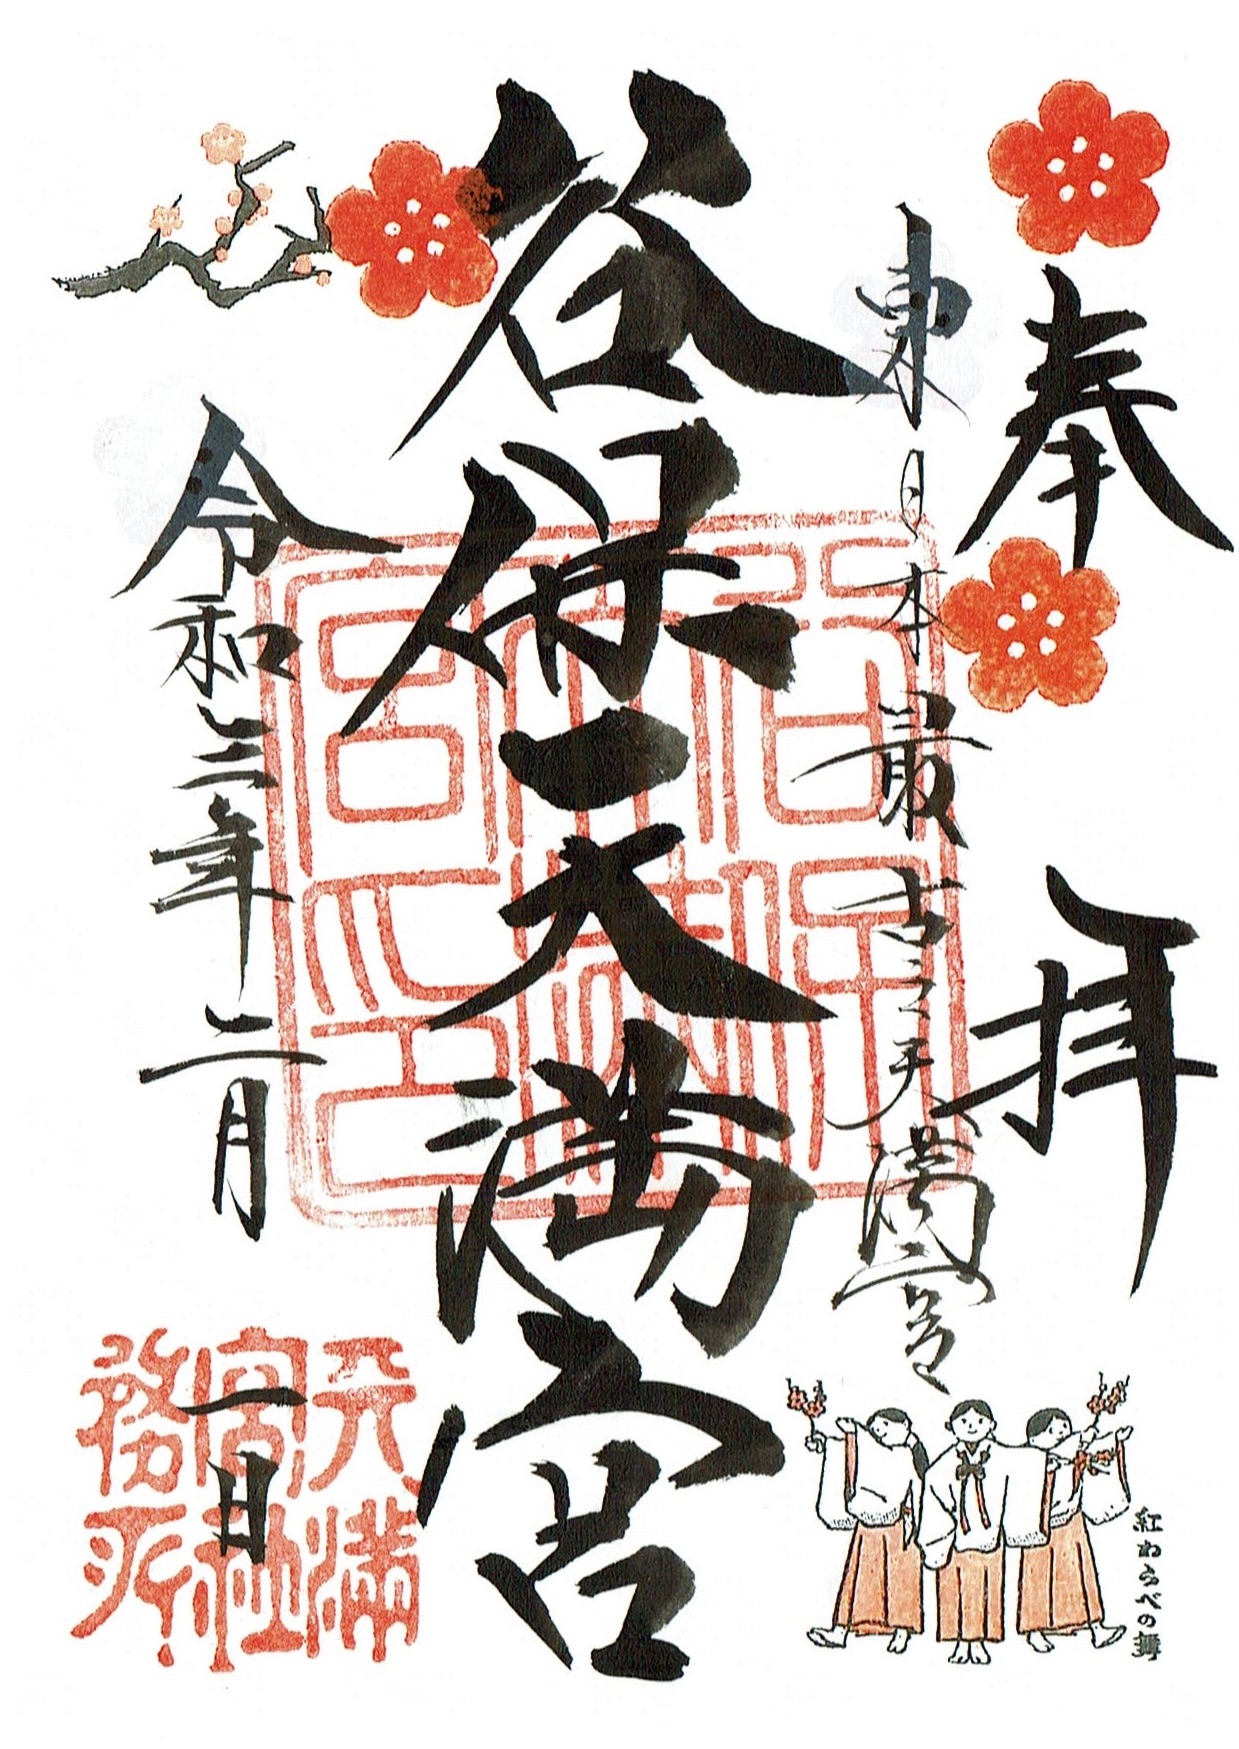 奉拝
東日本最古之天満宮
谷保天満宮
令和三年二月
一日
天満宮社務所
紅わらべの舞